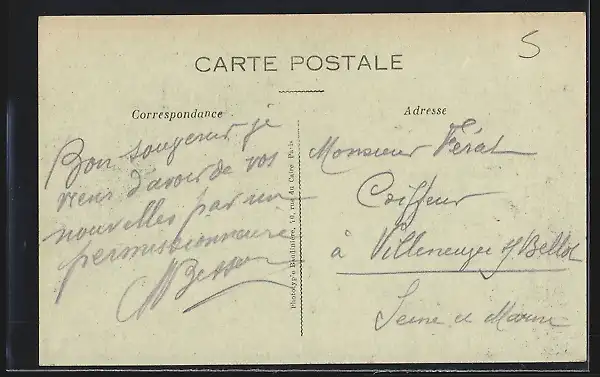 5
CARTE POSTALE
Correspondance
Adresse
Bon souvenir je
viens d'avoir de vos
nouvelles par un
permissionnaire
Besson
Phototypie Baudinière, 10, rue du Caire Paris
Monsieur Férat
Coiffeur
à Villeneuve s/ Bellot
Seine et Marne